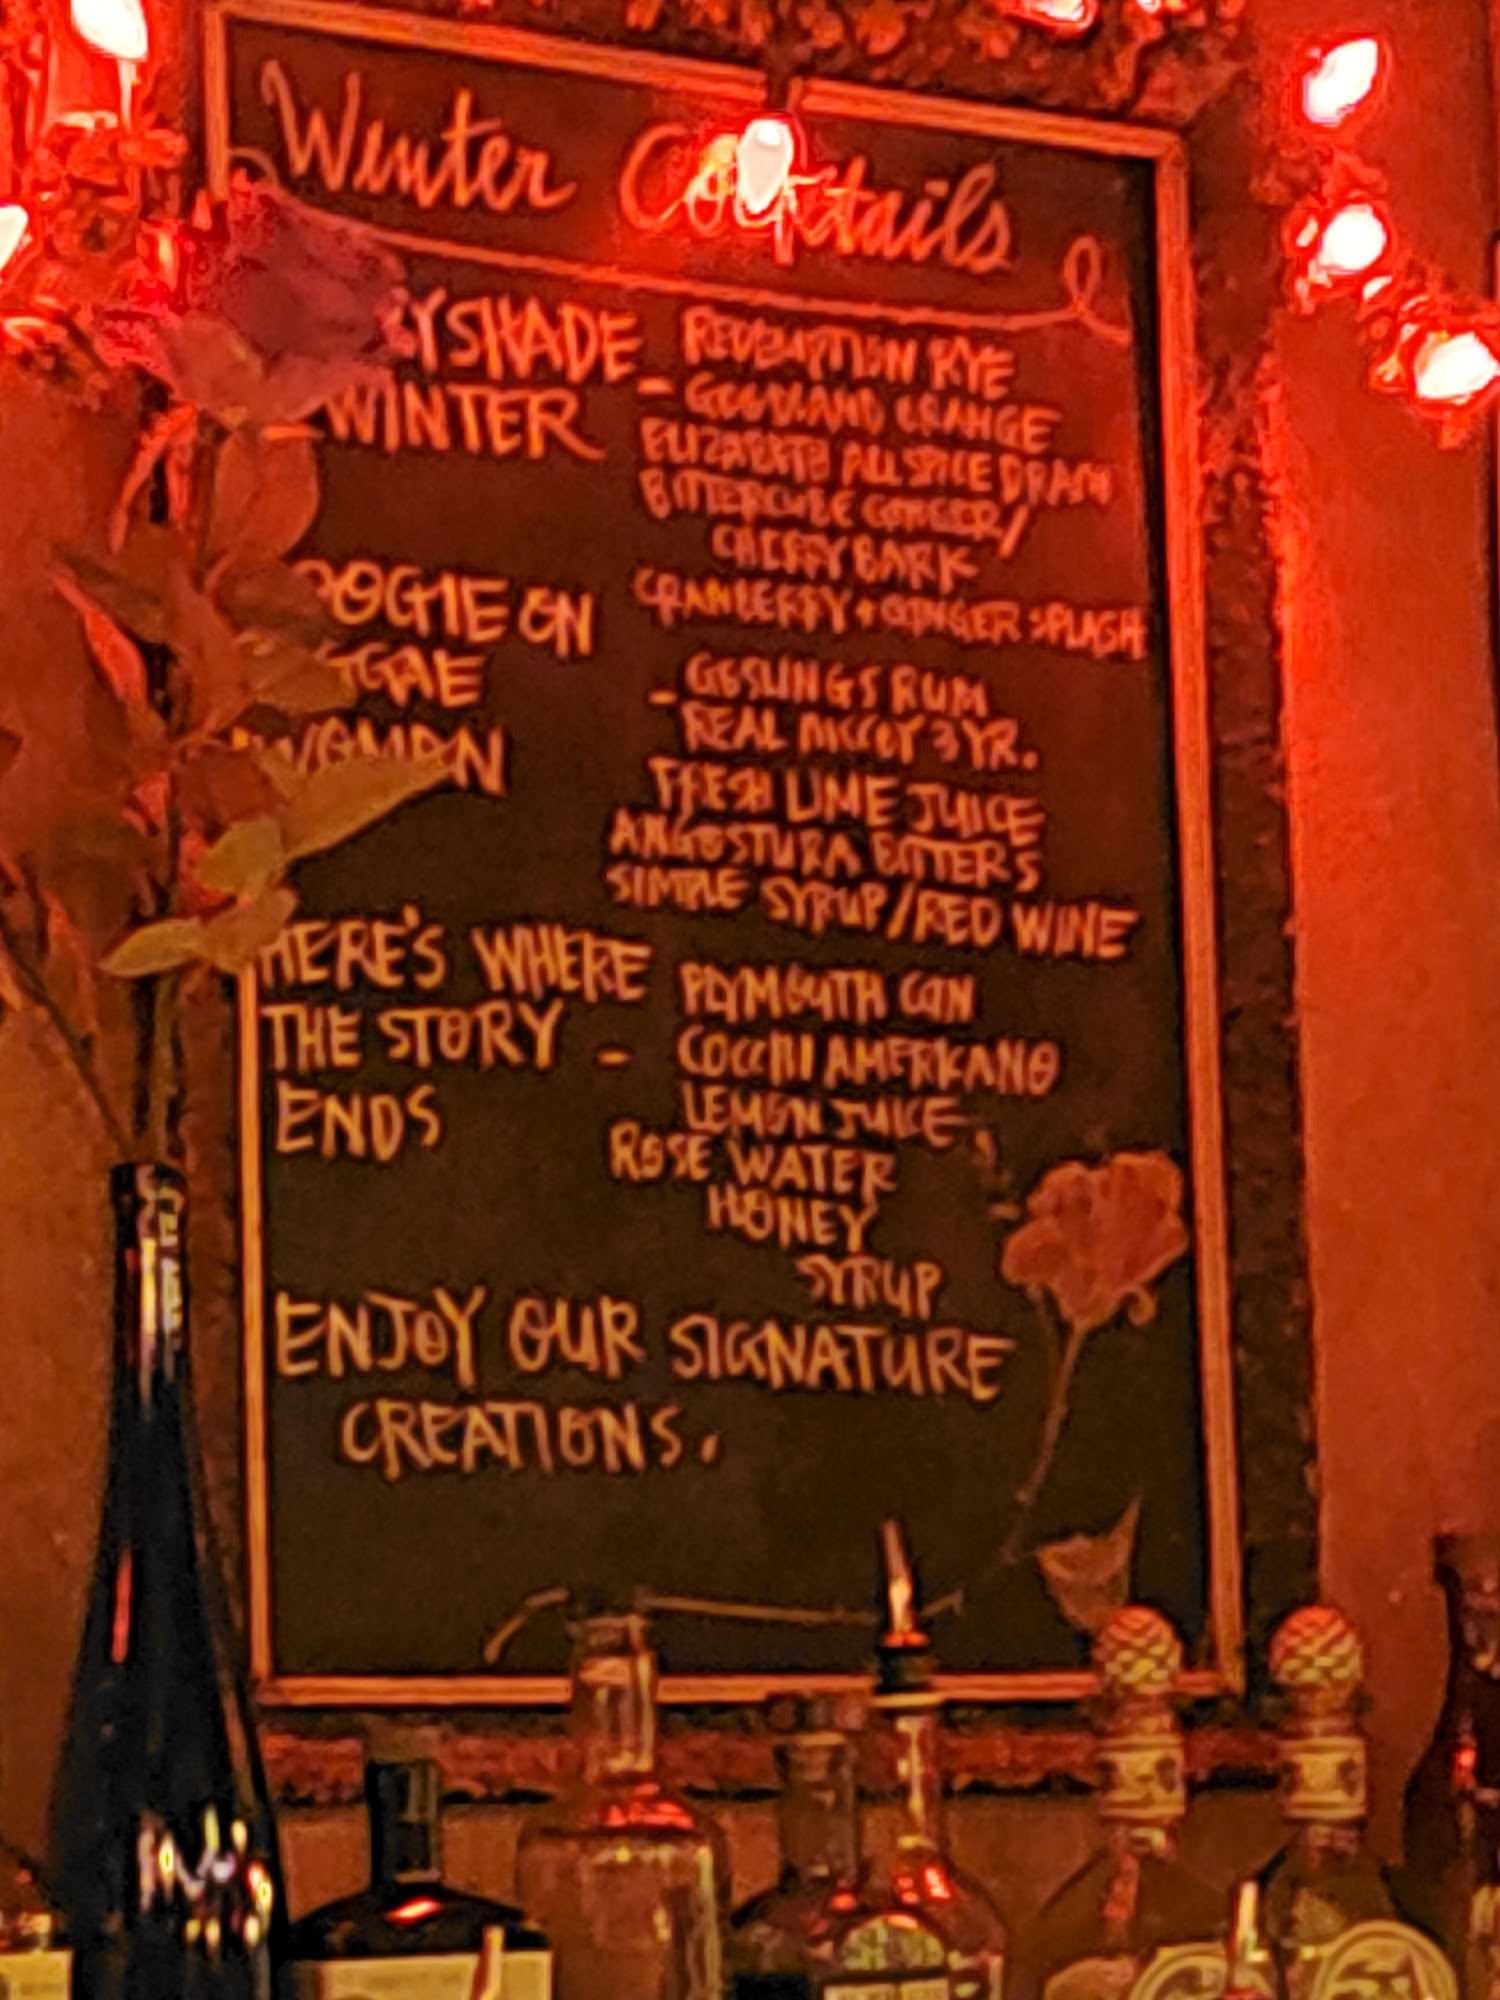 Winter Cocktails
Y SHADE - REDEMPTION RYE
WINTER - ORANGE
ELIZABETH ALLSPICE DRAM
BITTERCUBE
CHERRY BARK
CRANBERRY + GINGER SPLASH
OGIE ON
GGAE - GOSLINGS RUM
WOMAN REAL MCCOY 3 YR.
FRESH LIME JUICE
ANGOSTURA BITTERS
SIMPLE SYRUP/RED WINE
HERE'S WHERE PLYMOUTH GIN
THE STORY - COCCHI AMERICANO
ENDS LEMON JUICE,
ROSE WATER
HONEY
SYRUP
ENJOY OUR SIGNATURE
CREATIONS.